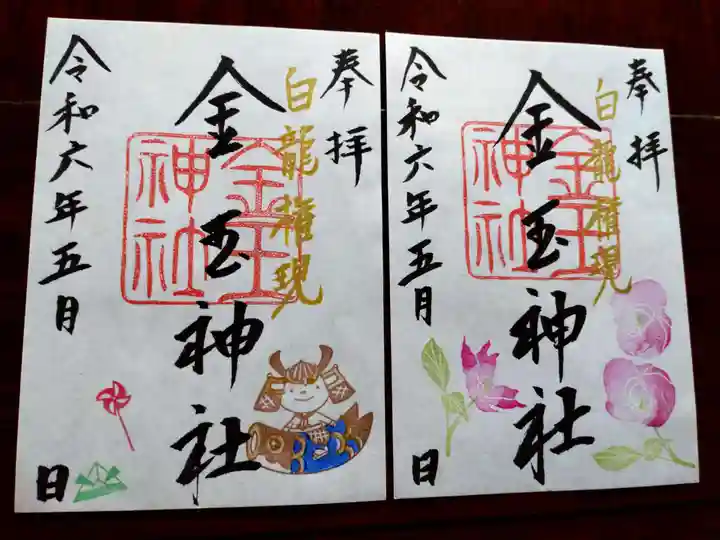 奉拝
白龍権現
金玉神社
金玉神社
令和六年五月
日
奉拝
白龍権現
金玉神社
金玉神社
令和六年五月
日